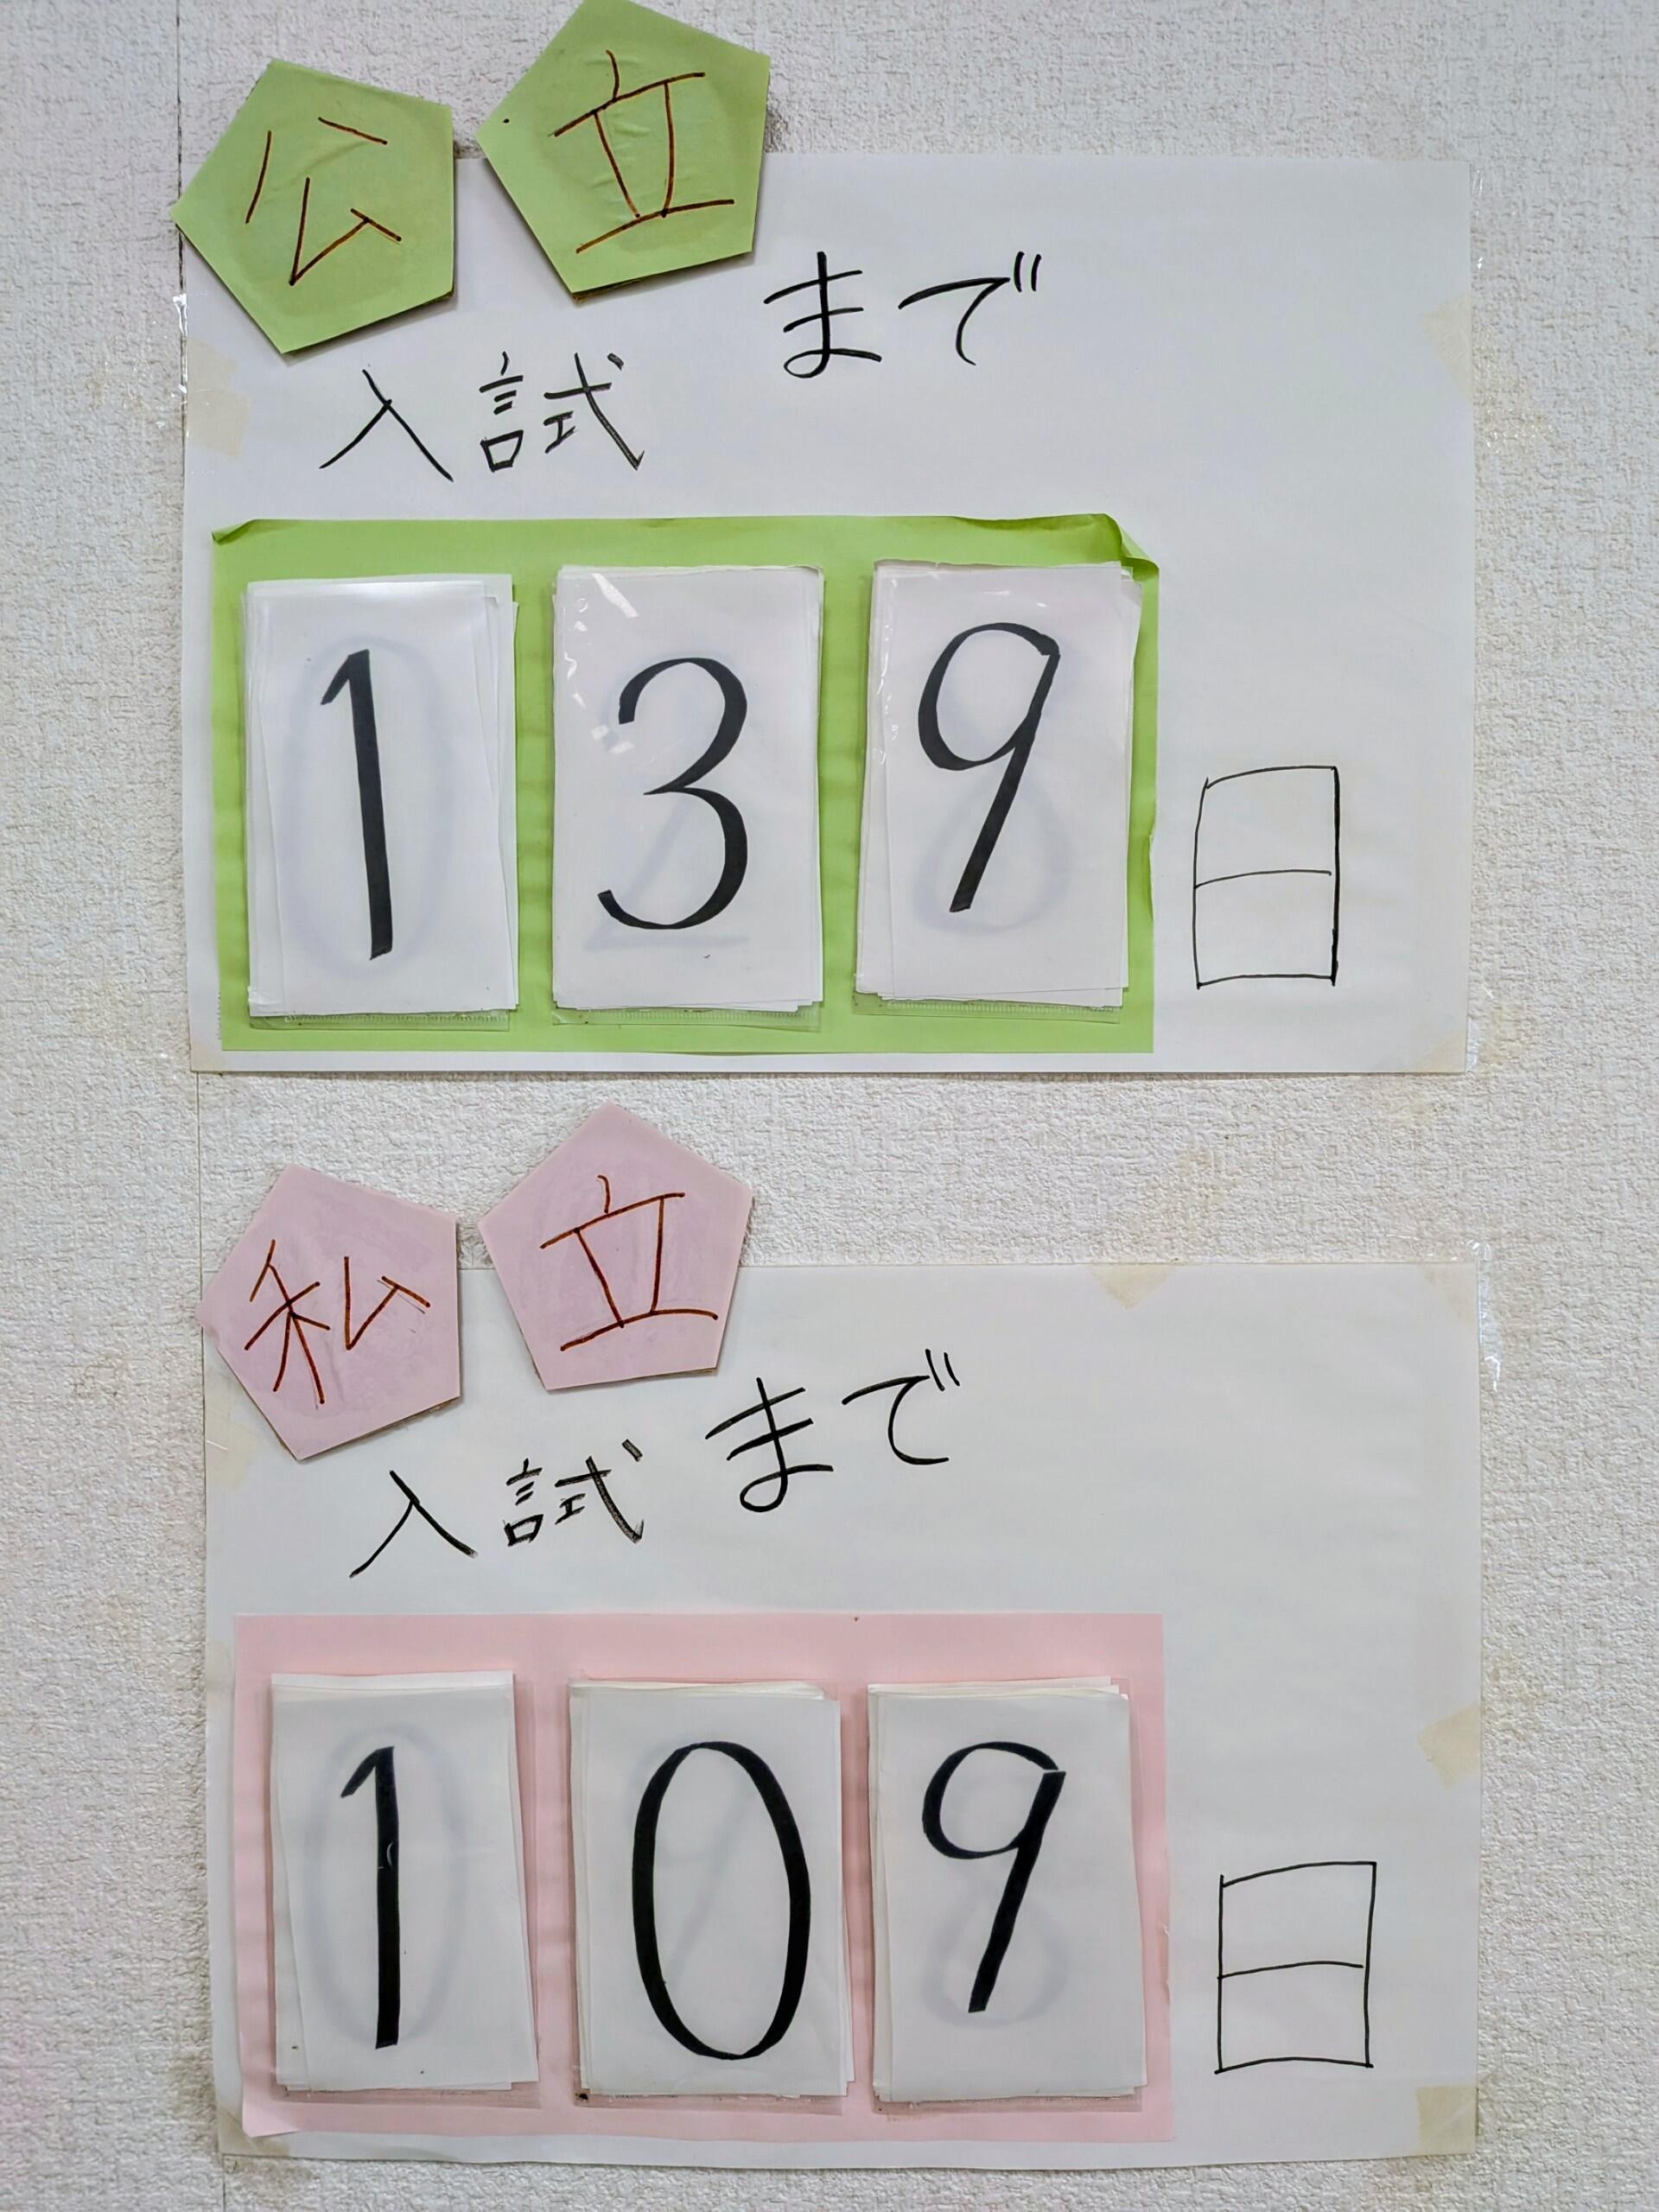 公立
入試まで
139日
私立
入試まで
109日